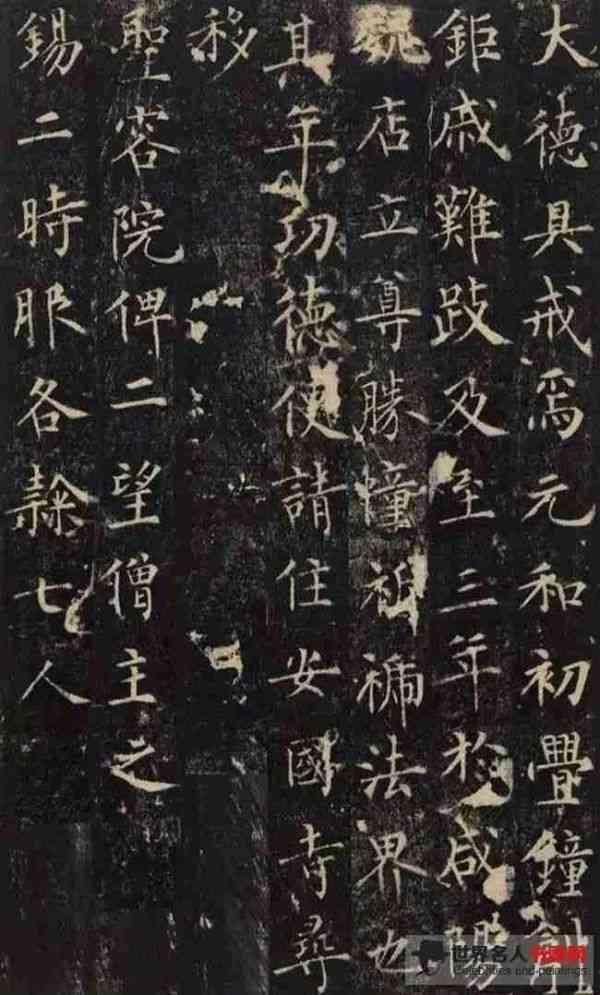 大德具戒焉元和初疊鐘創
鉅戚難跂及至三年於咸陽
魏店立尊勝幢禰法界也
其年功德使請住安國寺尋
移
聖容院俾二望僧主之
錫二時服各隸七人
世界名人书画网
Celebrities and paintings